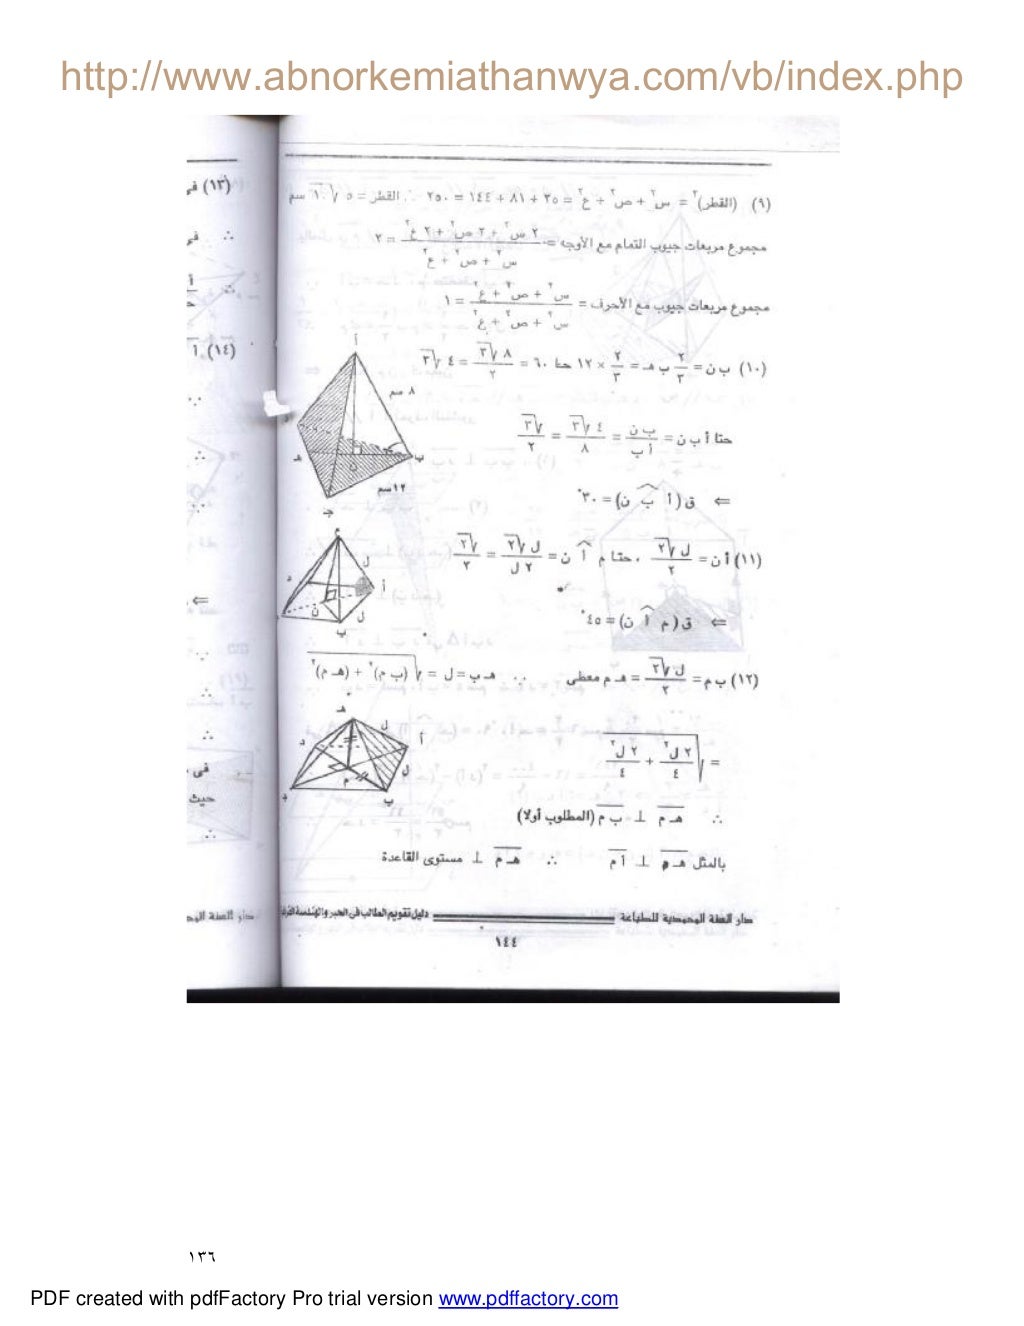 http://www.abnorkemiathanwya.com/vb/index.php
(٩) (القطر)٢ = س٢ + ص٢ + ع٢ = ٢٥ + ٨١ + ١٤٤ = ٢٥٠ ∴ القطر = ٥ √١٠ سم
مجموع مربعات جيوب التمام مع الأوجه = (٢ س٢ + ٢ ص٢ + ٢ ع٢) / (س٢ + ص٢ + ع٢) = ٢
مجموع مربعات جيوب مع الأحرف = (س٢ + ص٢ + ع٢) / (س٢ + ص٢ + ع٢) = ١
(١٠) ب ن = ٢/٣ ب هـ = ٢/٣ × ١٢ حتا ٦٠ = ٨√٣ / ٢ = ٤ √٣
حتا أ ب ن = ب ن / أ ب = ٤ √٣ / ٨ = √٣ / ٢
⇐ ق (أ ب ن) = ٣٠°
(١١) أ ن = ل √٢ / ٢ ، حتا م أ ن = ل √٢ / ٢ ل = √٢ / ٢
⇐ ق (م أ ن) = ٤٥°
(١٢) ب م = ل √٢ / ٢ = هـ م معطى ∵ هـ ب = ل = √(ب م)٢ + (هـ م)٢
= √ ٢ ل٢ / ٤ + ٢ ل٢ / ٤
∴ هـ م ⊥ ب م (المطلوب أولا)
بالمثل هـ م ⊥ أ م ∴ هـ م ⊥ مستوى القاعدة
أ
٨ سم
هـ
ن
ب
١٢ سم
جـ
ل
أ
د
ن
ل
ب
هـ
ل
أ
د
ل
م
ب
(١٣) فى
∴ فى
(١٤) أ
∵
∴
⇐
∵
∴
∴
فى
حيث
∴
دار الصفة المحمدية للطباعة
دليل تقويم الطالب فى الجبر والهندسة
١٤٤
١٣٦
PDF created with pdfFactory Pro trial version www.pdffactory.com